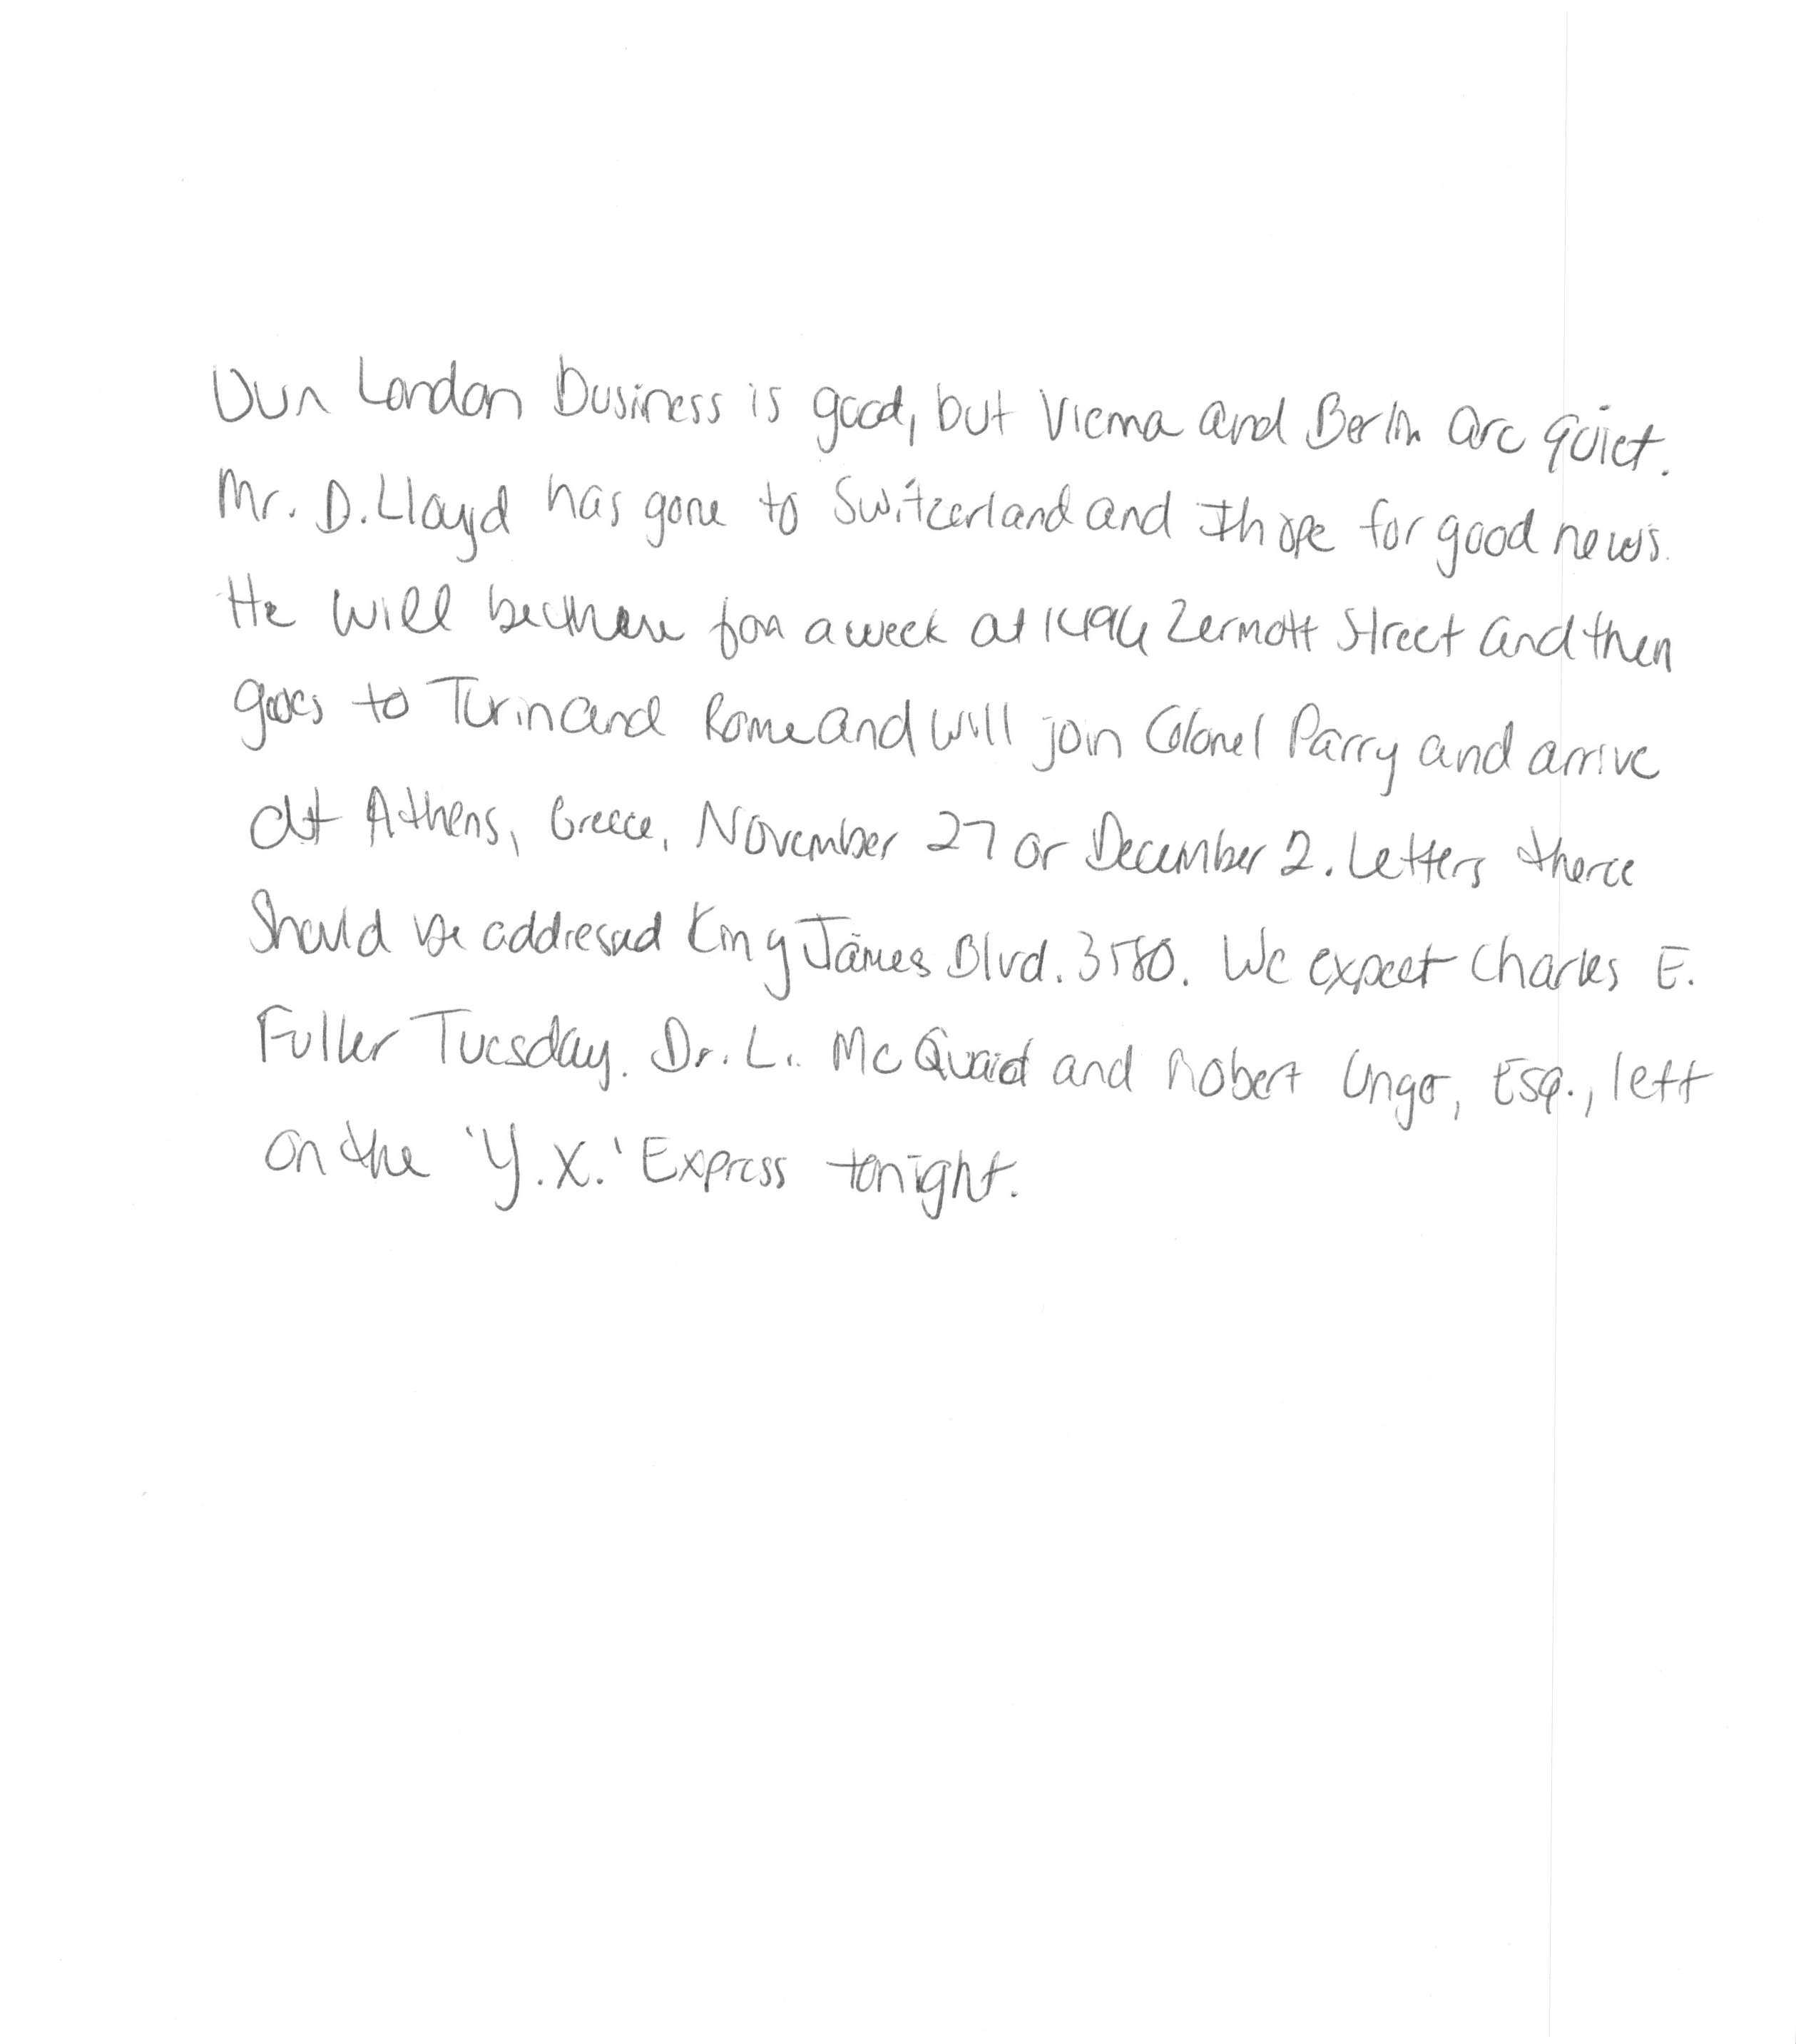 Our London business is good, but Vienna and Berlin are quiet.
Mr. D. Lloyd has gone to Switzerland and I hope for good news.
He will be there for a week at 1496 Zermott Street and then
goes to Turin and Rome and will join Colonel Parry and arrive
at Athens, Greece, November 27 or December 2. Letters there
should be addressed King James Blvd. 3580. We expect Charles E.
Fuller Tuesday. Dr. L. McQuaid and Robert Unger, Esq., left
on the 'Y.X.' Express tonight.